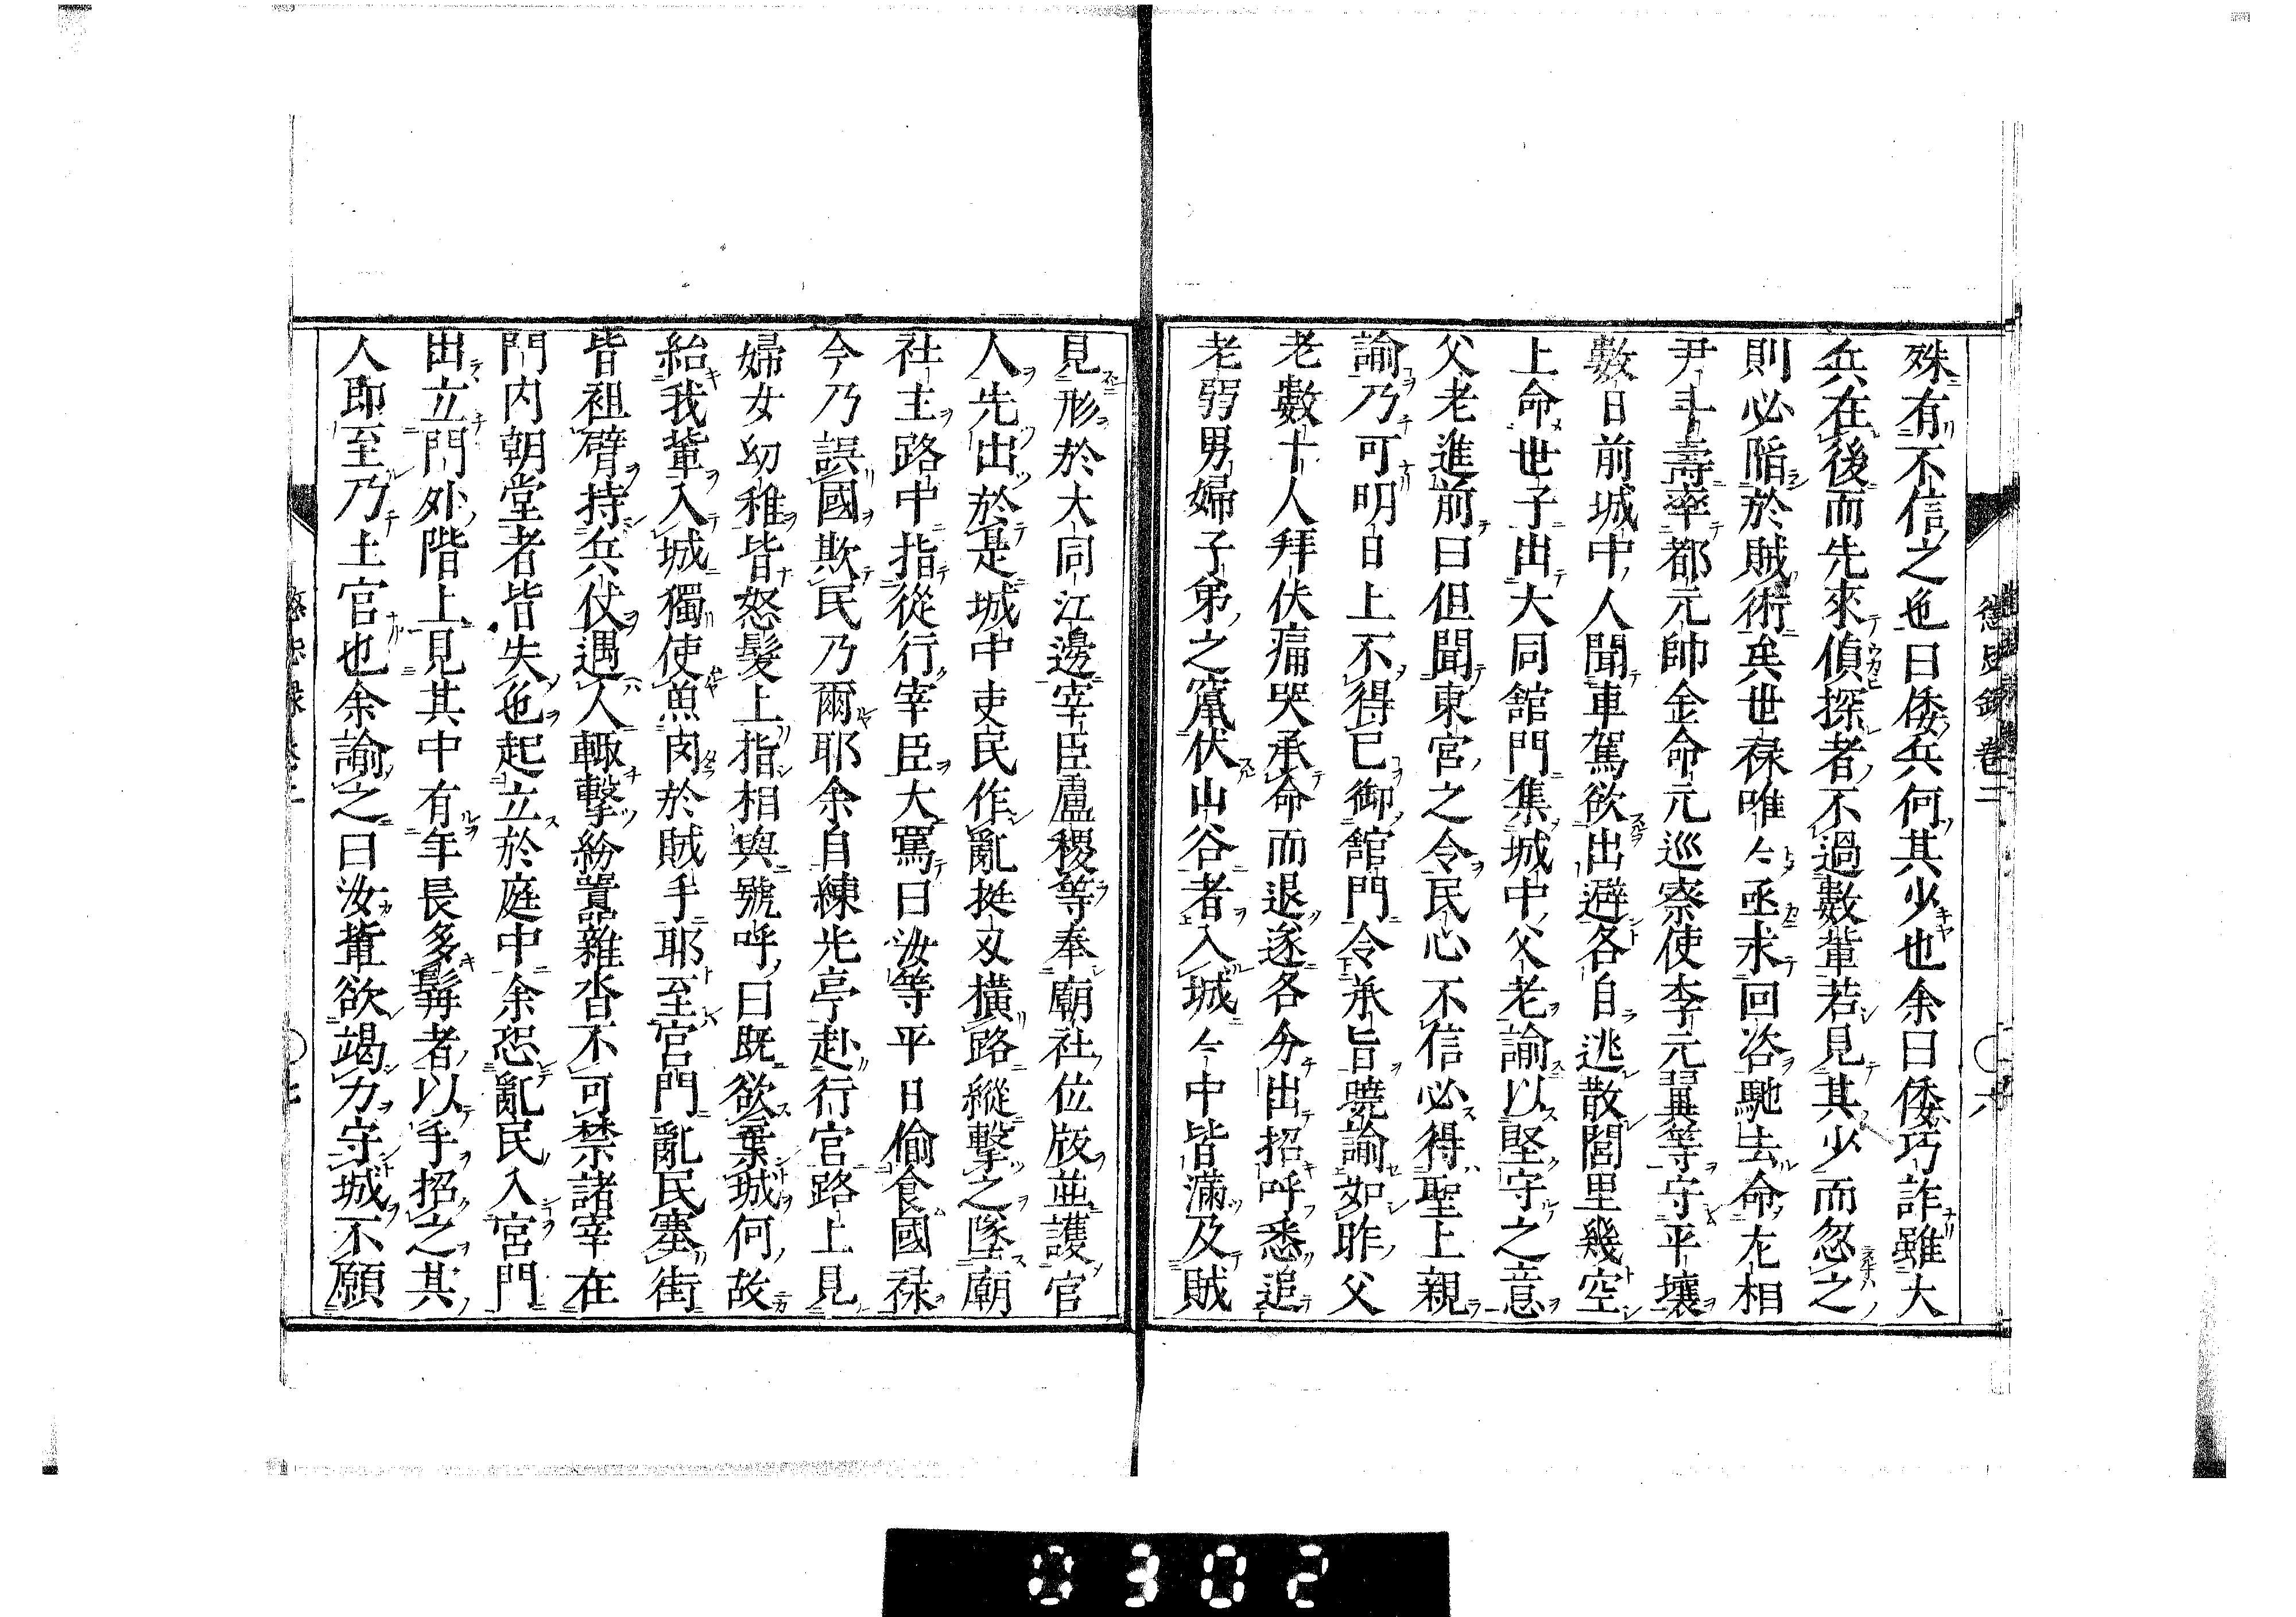 懲毖録 卷二 〇六
殊有不信之也曰倭兵何其少也余曰倭巧詐雖大
兵在後而先來偵探者不過數輩若見其少而忽之
則必陷於賊術矣世禄唯々亟求回咨馳去命左相
尹斗壽率都元帥金命元巡察使李元翼等守平壤
數日前城中人聞車駕欲出避各自逃散閭里幾空
上命世子出大同館門集城中父老諭以堅守之意
父老進前曰但聞東宮之令民心不信必得聖上親
諭乃可明日上不得已御館門令承旨曉諭如昨父
老數十人拜伏痛哭承命而退遂各分出招呼悉追
老弱男婦子弟之竄伏山谷者入城々中皆滿及賊
見形於大同江邊宰臣盧稷等奉廟社位版並護宮
人先出於是城中吏民作亂挺刃橫路縱擊之墜廟
社主路中指從行宰臣大罵曰汝等平日偷食國禄
今乃誤國欺民乃爾耶余自練光亭赴行宮路上見
婦女幼稚皆怒髮上指相與號呼曰既欲棄城何故
紿我輩入城獨使魚肉於賊手耶至宮門亂民塞街
皆袒臂持兵仗遇人輙擊紛囂雜沓不可禁諸宰在
門内朝堂者皆失色起立於庭中余恐亂民入宮門
出立門外階上見其中有年長多髯者以手招之其
人即至乃土官也余諭之曰汝輩欲竭力守城不願
懲毖録 卷二 〇七
0302